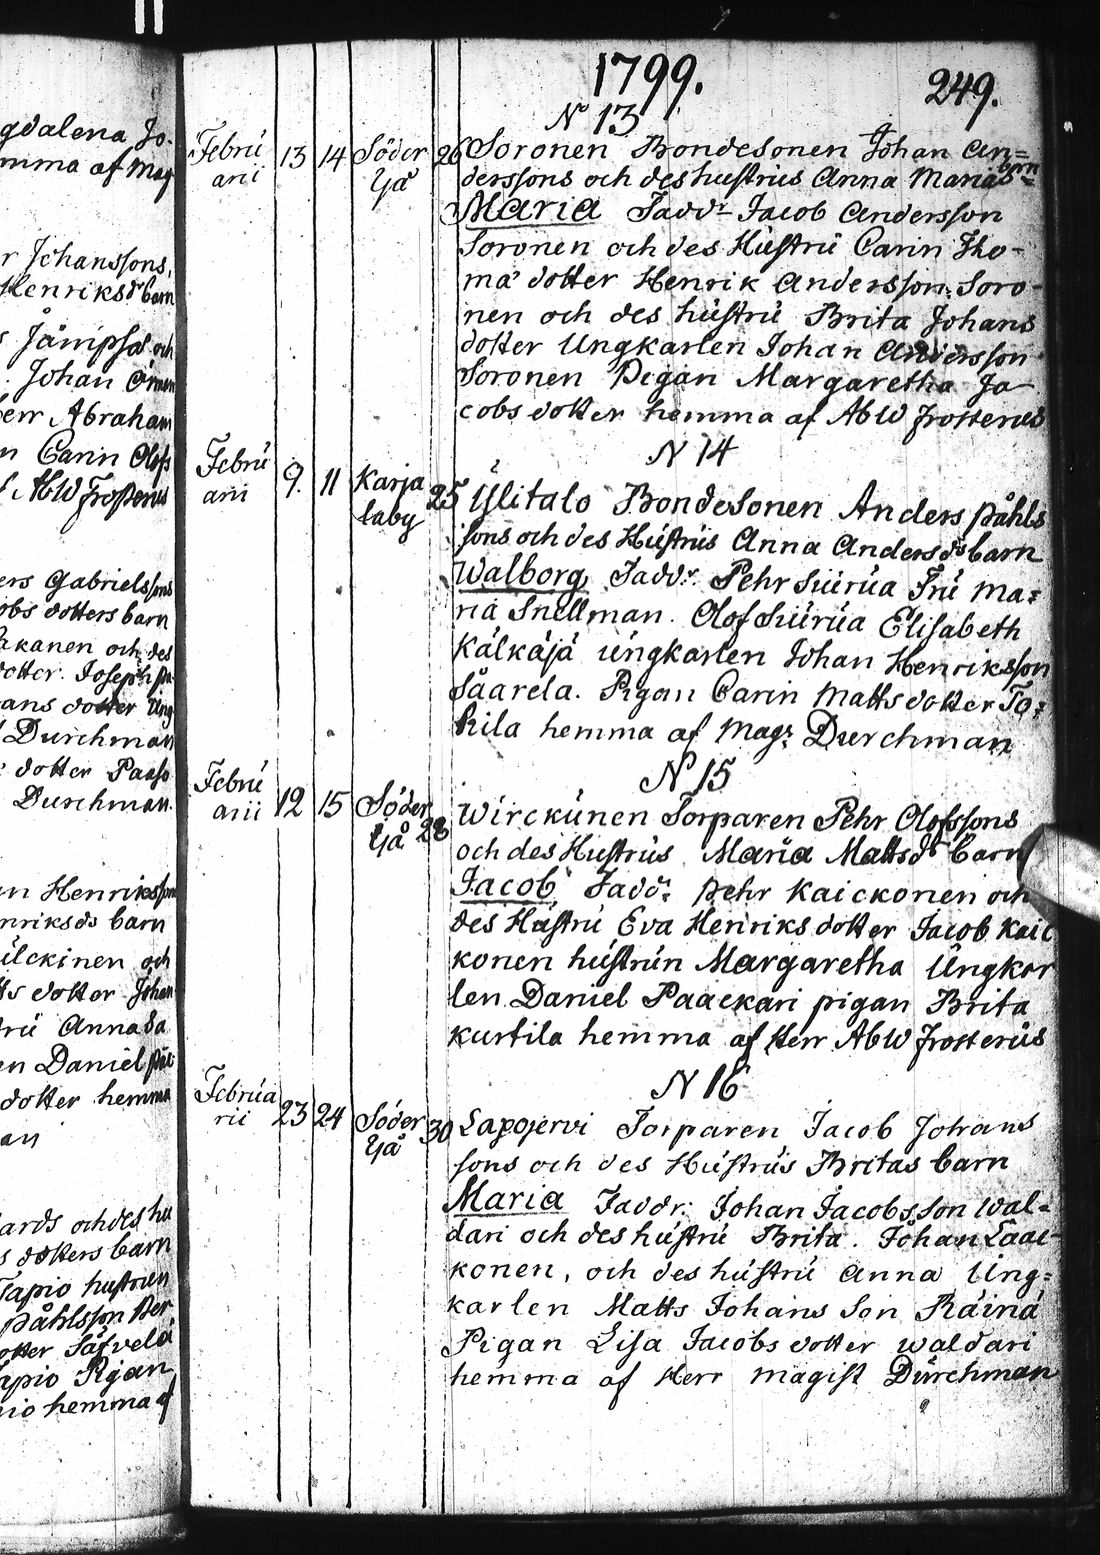 1799.
249.
gdalena Jo-
mma af Mag
r Johanssons,
Henriksdr barn
och
Johan
err Abraham
n Carin Olofs
f AbW Frosterus
ers Gabrielssons
obs dotters barn
akanen och des
dotter. Joseph
ans dotter Ung
Durchman
dotter Paaso
Durchman.
an Henriksson
nriksds barn
ülckinen och
ts dotter Johan
trü Anna Sa
en Daniel
dotter hemma
an
ards och des hu
s dotters barn
Tapio hustrun
Påhlsson Per
otter Säfvelä
apio Pigan
io hemma af
N 13
Febru 13 14 Söder 26 Soronen Bondesonen Johan An=
arii Yå derssons och des hustrus Anna Marias barn
Maria Faddr Jacob Andersson
Soronen och des Hustru Carin Tho-
mä dotter Henrik Andersson Soro-
nen och des hustru Brita Johans
dotter Ungkarlen Johan Andersson
Soronen Pigan Margaretha Ja-
cobs dotter hemma af AbW frosterus
N 14
Febru 9. 11 Karja 25 Ylitalo Bondesonen Anders påhls
arii laby sons och des Hustrus Anna Andersds barn
Walborg Faddr. Pehr Siurua Fru Ma=
ria Snellman. Olof Siurua Elisabeth
Kälkäjä ungkarlen Johan Henriksson
Säarela. Pigan Carin Matts dotter To=
kila hemma af Magr Durchman
N 15
Febru 12 15 Söder 28 Wirckunen Torparen Pehr Olofssons
arii Yå och des Hustrus Maria Mattsdr barn
Jacob Faddr pehr Kaickonen och
des Hustru Eva Henriks dotter Jacob Kaic
konen hustrun Margaretha Ungkar
len Daniel Paackari pigan Brita
kurtila hemma af Herr AbW frosterus
N 16
Februa 23 24 Söder 30 Lapojervi Torparen Jacob Johans
rii Yå sons och des Hustrus Britas barn
Maria Faddr. Johan Jacobsson Wal=
dari och des hustru Brita. Johan Laac-
konen, och des hustru Anna Ung=
karlen Matts Johans Son Räinä
Pigan Lisa Jacobs dotter waldari
hemma af Herr magist Durchman